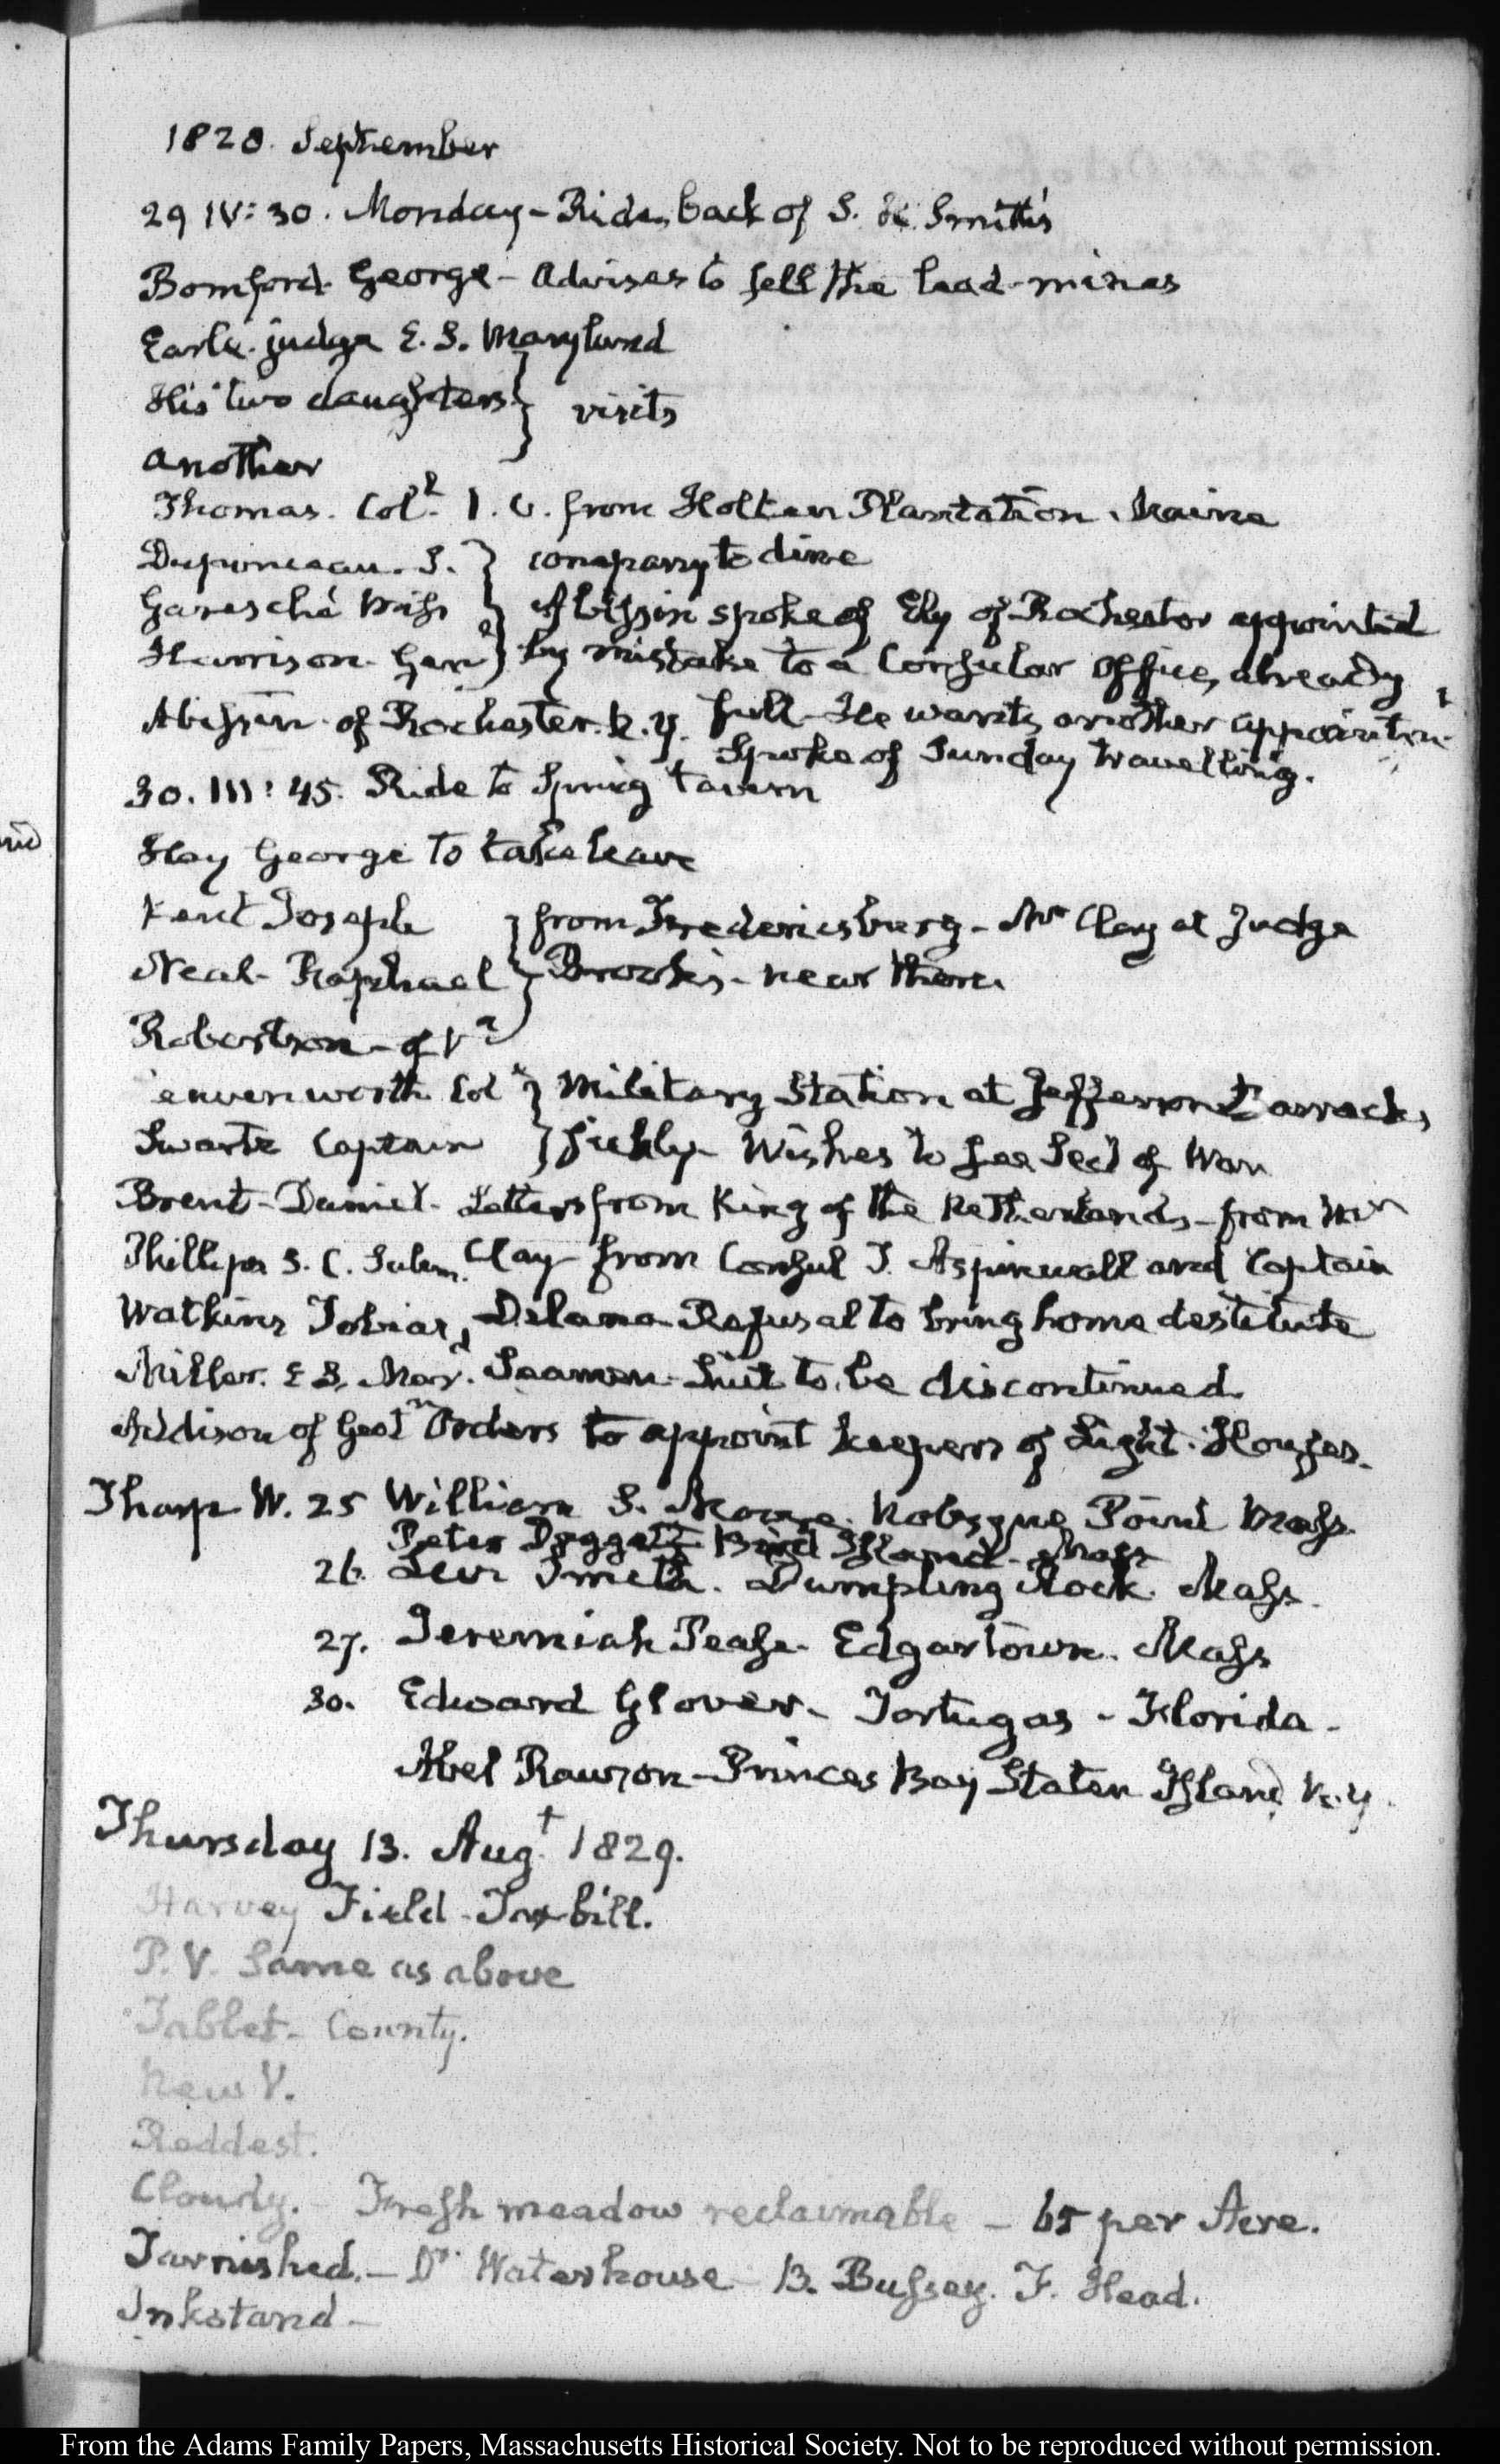 1828. September
29 IV: 30. Monday – Ride, back of S. H. Smith's
Bomford. George – Advises to sell the lead-mines
Earle. judge E. S. Maryland
His two daughters } visits
another
Thomas. Col.l I. C. from Holten Plantation. Maine
Duponceau. S. } company to dine
Garesché Miss } A'Bissin spoke of Ely of Rochester appointed
Harrison. Gen } by mistake to a Consular Office, already
A'Bissin of Rochester. N. Y. full – He wants another appointm.t
Spoke of Sunday travelling.
30. III: 45. Ride to Spring tavern
Hay George to take leave
Kent Joseph } from Fredericksburg – Mr Clay at Judge
Neal – Raphael } Brooke's – near there.
Robertson – of V.a
eavenworth Col } Military Station at Jefferson Barracks,
Swartz Captain } sickly – Wishes to see Sec.y of War
Brent – Daniel – Letters from King of the Netherlands – from Mr
Phillips S. C. Salem. Clay – from Consul T. Aspinwall and Captain
Watkins Tobias, Delano Refusal to bring home destitute
Miller. E S. Mar.d Seamen – Suit to be discontinued
Addison of Geo.tn Orders to appoint keepers of Light-Houses.
Tharp W. 25 William S. Moore. Nobsque Point Mass.
Peter Daggett Bird Island – Mass
26. Levi Smith. Dumpling Rock. Mass.
27. Jeremiah Pease – Edgartown. Mass
30. Edward Glover – Tortugas – Florida –
Abel Rawson – Princes Bay Staten Island N. Y.
Thursday 13. Aug.t 1829.
Harvey Field – Tax-bill.
P. V. Same as above
Tablet – County.
New V.
Reddest.
Cloudy. – Fresh meadow reclaimable – 65 per Acre.
Tarnished. – Dr. Waterhouse – B. Bussey. F. Head.
Inkstand –
From the Adams Family Papers, Massachusetts Historical Society. Not to be reproduced without permission.